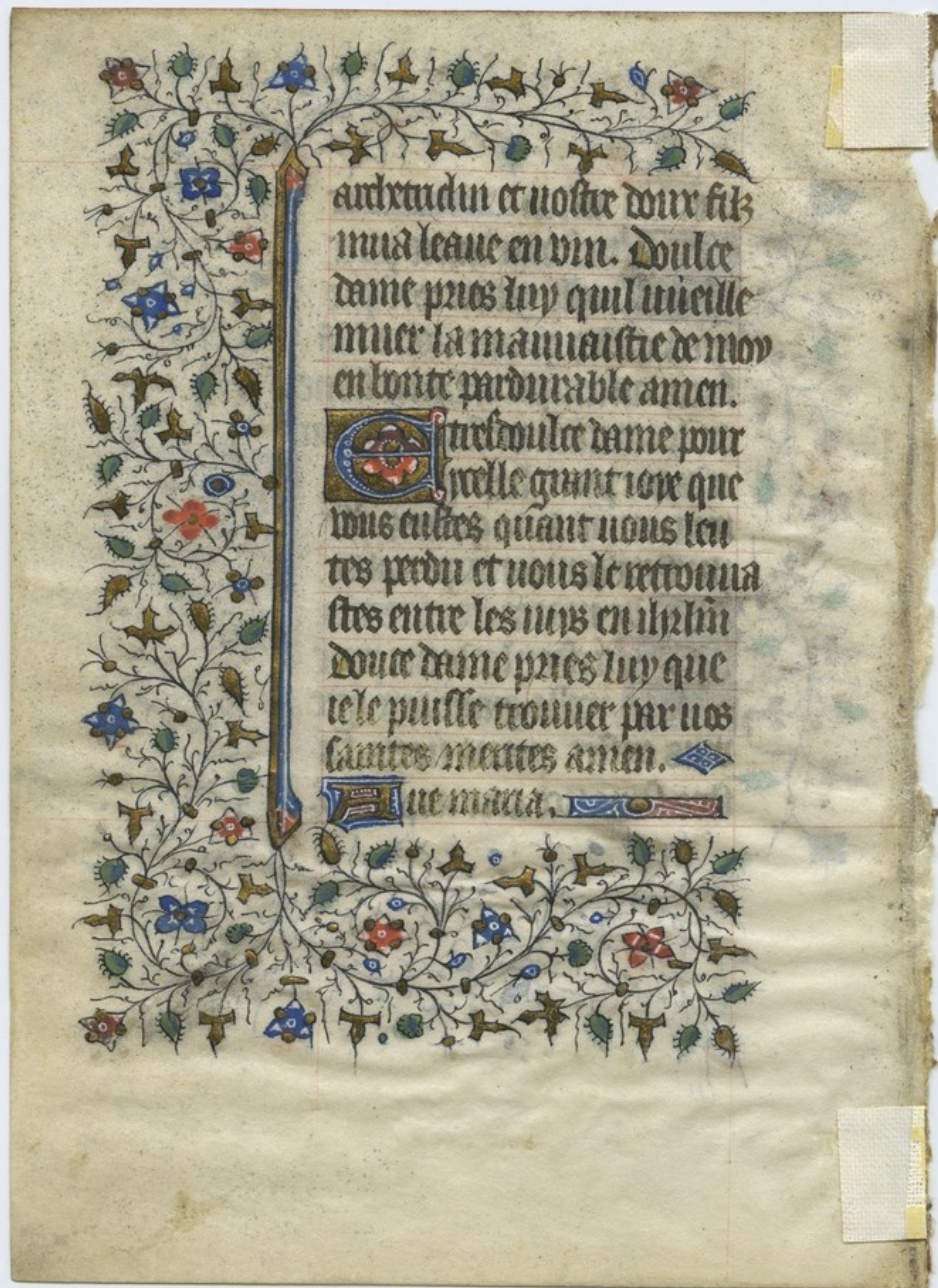 archetriclin et uostre doux filz
mua leaue en vin. Doulce
dame pries luy quil uueille
muer la mauuaistie de moy
en bonte pardurable amen.
E tresdoulce dame pour
ycelle grant ioye que
vous eustes quant uous leu
tes perdu et uous le retrouua
stes entre les iuys en ihrlm̄
douce dame pries luy que
ie le puisse trouuer par uos
saintes merites amen.
Aue maria.